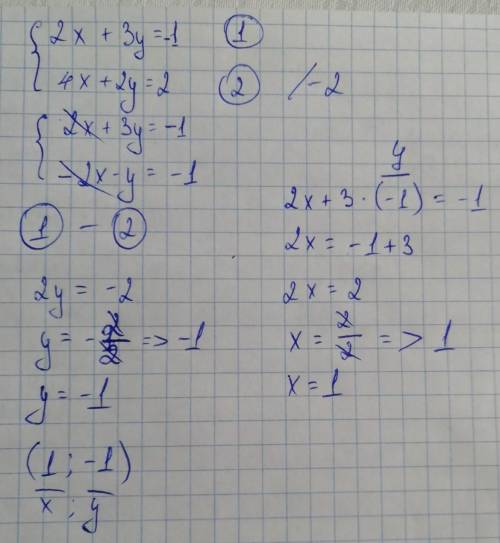 2x + 3y = -1 ①
4x + 2y = 2 ② /-2
2x + 3y = -1
-2x - y = -1
① - ②
2y = -2
y = - => -1
y = -1
(1 ; -1)
x ; y
y
2x + 3 · (-1) = -1
2x = -1 + 3
2x = 2
x = 2/2 => 1
x = 1